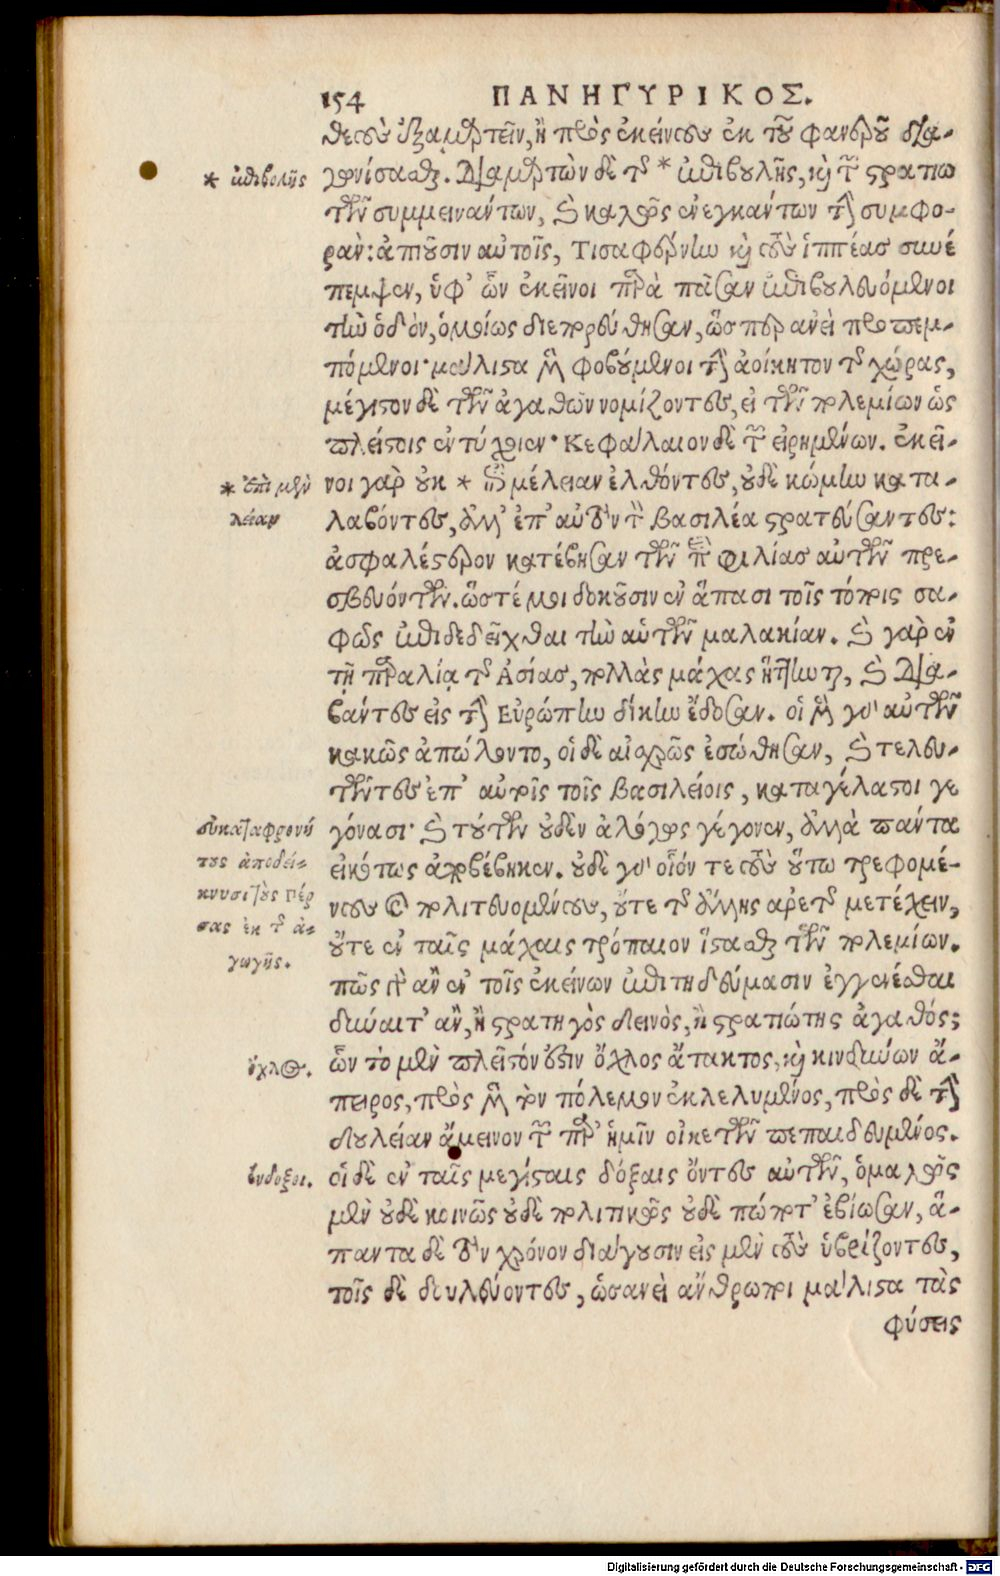 154 ΠΑΝΗΓΥΡΙΚΟΣ.
θεοὺς ἐξαμαρτεῖν, ἢ πρὸς ἐκείνους ἐκ τοῦ φανεροῦ δια-
γωνίσασθαι. Διαμαρτὼν δὲ τῆς * ἐπιβουλῆς, καὶ τῶν στρατιω
τῶν συμμεινάντων, καὶ καλῶς ἐνεγκάντων τὴν συμφο-
ρὰν: ἀπιοῦσιν αὐτοῖς, Τισαφέρνην καὶ τοὺς ἱππέας συνέ
πεμψεν, ὑφ' ὧν ἐκεῖνοι παρὰ πᾶσαν ἐπιβουλευόμενοι
τὴν ὁδὸν, ὁμοίως διεπορεύθησαν, ὥσπερ ἀνεὶ προπεμ-
πόμενοι· μάλιστα μὲν φοβούμενοι τὴν ἀοίκητον τῆς χώρας,
μέγιστον δὲ τῶν ἀγαθῶν νομίζοντες, εἰ τῶν πολεμίων ὡς
πλείστοις ἐντύχοιεν· Κεφάλαιον δὲ τῶν εἰρημένων. ἐκεῖ-
νοι γὰρ οὐκ * ἐπὶ μέλειαν ἐλθόντες, οὐδὲ κώμην κατα-
λαβόντες, ἀλλ' ἐπ' αὐτὸν τὸν βασιλέα στρατεύσαντες:
ἀσφαλέστερον κατέβησαν τῶν περὶ φιλίας αὐτῶν πρε-
σβευόντων. ὥστέ μοι δοκοῦσιν ἐν ἅπασι τοῖς τόποις σα-
φῶς ἐπιδεδεῖχθαι τὴν αὑτῶν μαλακίαν. καὶ γὰρ ἐν
τῇ παραλίᾳ τῆς Ἀσίας, πολλὰς μάχας ἥττηνται, καὶ δια-
βάντες εἰς τὴν Εὐρώπην δίκην ἔδοσαν. οἱ μὲν γὰρ αὐτῶν
κακῶς ἀπώλοντο, οἱ δὲ αἰσχρῶς ἐσώθησαν, καὶ τελευ-
τῶντες ἐπ' αὐτοῖς τοῖς βασιλείοις, καταγέλαστοι γε
γόνασι· καὶ τούτων οὐδὲν ἀλόγως γέγονεν, ἀλλὰ πάντα
εἰκότως ἀποβέβηκεν. οὐδὲ γὰρ οἷόν τε τοὺς οὕτω τρεφομέ-
νους καὶ πολιτευομένους, οὔτε τῆς ἄλλης ἀρετῆς μετέχειν,
οὔτε ἐν ταῖς μάχαις τρόπαιον ἱστάσθαι τῶν πολεμίων.
πῶς γὰρ ἂν ἐν τοῖς ἐκείνων ἐπιτηδεύμασιν ἐγγενέσθαι
δύναιτ' ἂν, ἢ στρατηγὸς δεινὸς, ἢ στρατιώτης ἀγαθός;
ὧν τὸ μὲν πλεῖστόν ἐστιν ὄχλος ἄτακτος, καὶ κινδύνων ἄ-
πειρος, πρὸς μὲν τὸν πόλεμον ἐκλελυμένος, πρὸς δὲ τὴν
δουλείαν ἄμεινον τῶν παρ' ἡμῖν οἰκετῶν πεπαιδευμένος.
οἱ δὲ ἐν ταῖς μεγίσταις δόξαις ὄντες αὐτῶν, ὁμαλῶς
μὲν οὐδὲ κοινῶς οὐδὲ πολιτικῶς οὐδὲ πώποτ' ἐβίωσαν, ἅ-
παντα δὲ τὸν χρόνον διάγουσιν εἰς μὲν τοὺς ὑβρίζοντες,
τοῖς δὲ δουλεύοντες, ὡσανεὶ ἄνθρωποι μάλιστα τὰς
φύσεις
* ἐπιβολῆς
* ἐπὶ μὲν
λείαν
συγκαταφρονοῦ
τος ἀποδεί-
κνυσι τοὺς Πέρ
σας ἐκ τῆς ἀ-
γωγῆς.
ὄχλος.
ἔνδοξοι.
Digitalisierung gefördert durch die Deutsche Forschungsgemeinschaft - DFG